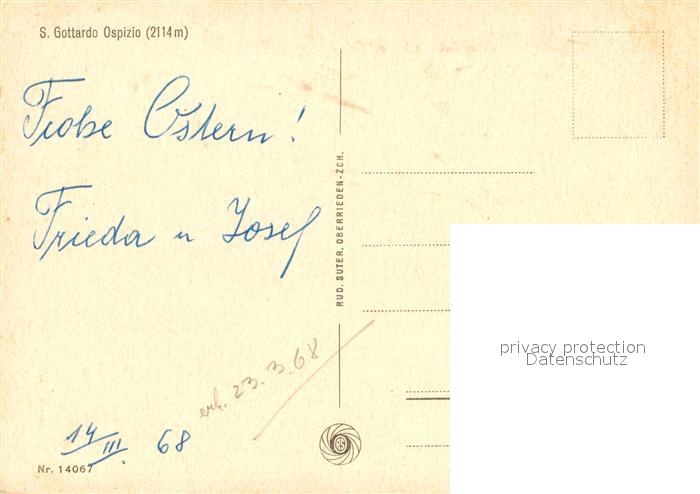 S. Gottardo Ospizio (2114 m)
Frohe Ostern!
Frieda u Josef
erh. 23. 3. 68
14/III. 68
Nr. 14067
RUD. SUTER, OBERRIEDEN-ZCH.
RS
privacy protection
Datenschutz